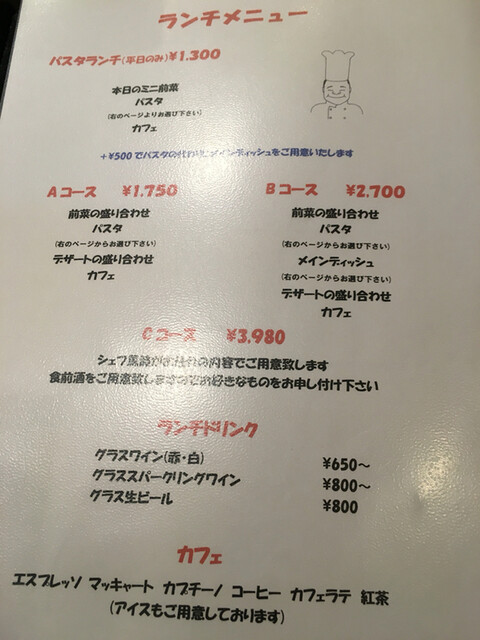 ランチメニュー
パスタランチ(平日のみ)¥1.300
本日のミニ前菜
パスタ
(右のページよりお選び下さい)
カフェ
+¥500でパスタの代わりにメインディッシュをご用意いたします
Aコース ¥1.750
前菜の盛り合わせ
パスタ
(右のページからお選び下さい)
デザートの盛り合わせ
カフェ
Bコース ¥2.700
前菜の盛り合わせ
パスタ
(右のページからお選び下さい)
メインディッシュ
(右のページからお選び下さい)
デザートの盛り合わせ
カフェ
Cコース ¥3.980
シェフ厳選 の内容でご用意致します
食前酒をご用意致しますのでお好きなものをお申し付け下さい
ランチドリンク
グラスワイン(赤・白) ¥650～
グラススパークリングワイン ¥800～
グラス生ビール ¥800
カフェ
エスプレッソ マッキャート カプチーノ コーヒー カフェラテ 紅茶
(アイスもご用意しております)